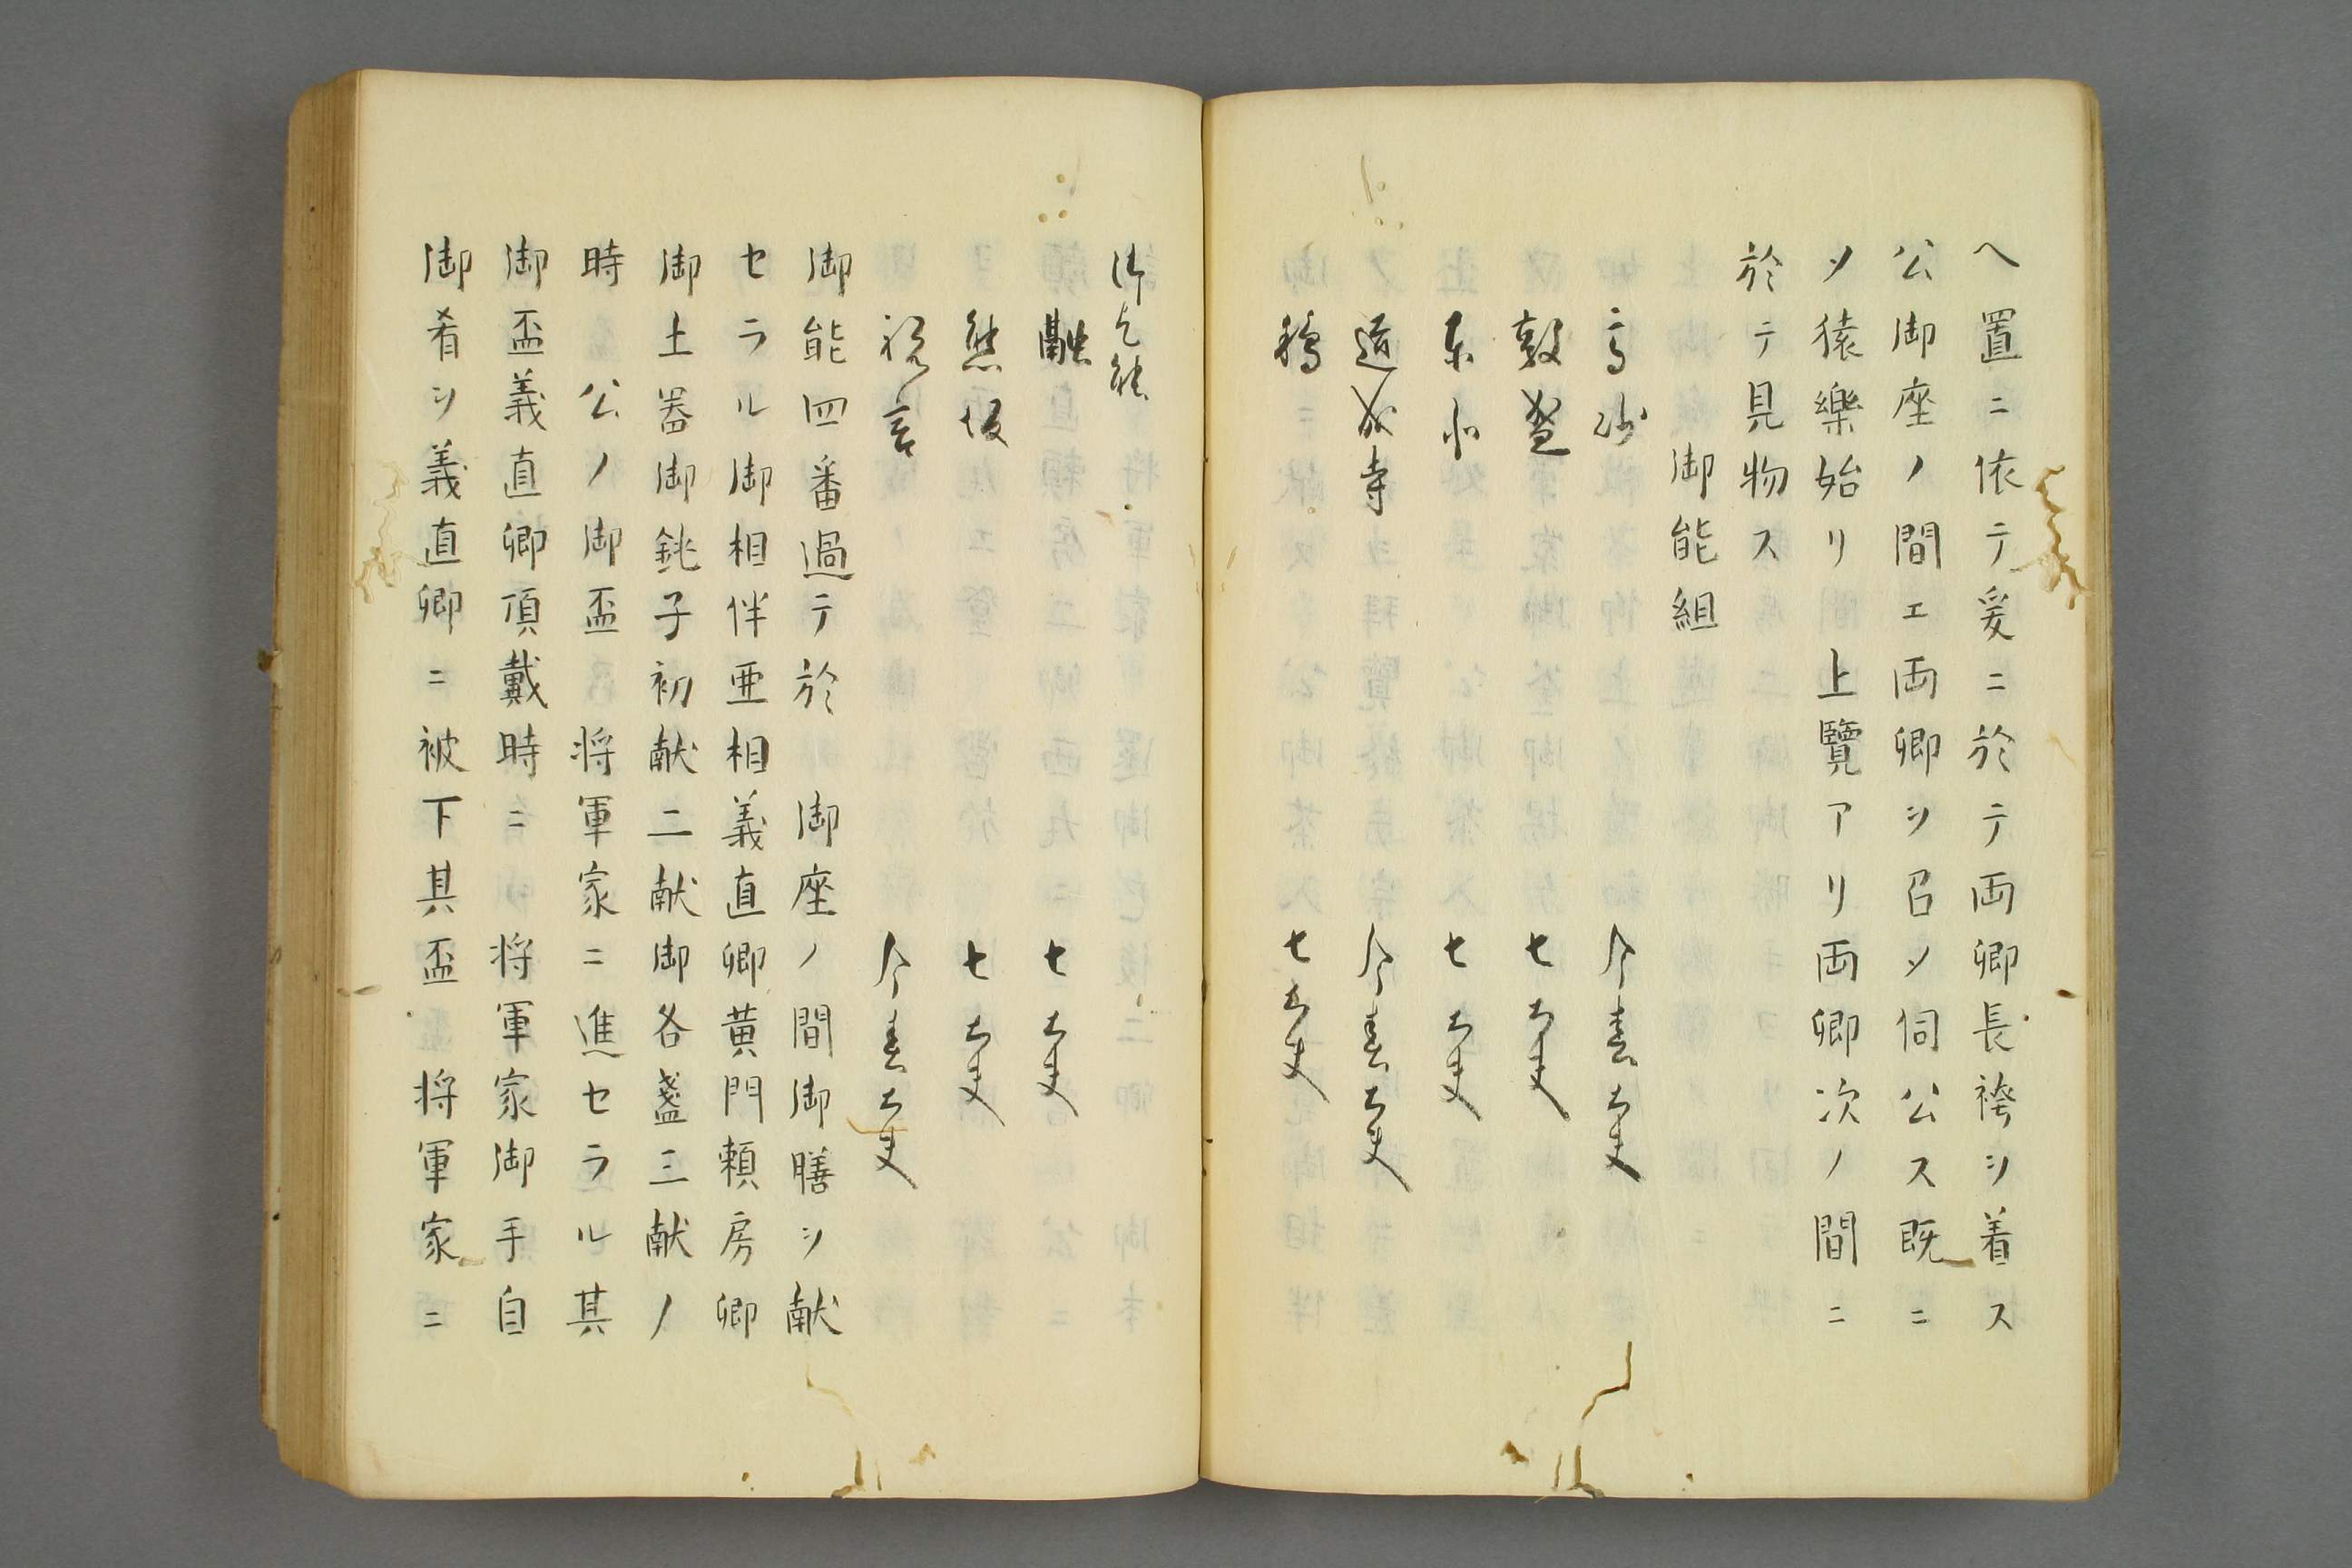 ヘ置ニ依テ爰ニ於テ両卿長袴ヲ着ス
公御座ノ間エ両卿ヲ召ソ伺公ス既ニ
ソ猿樂始リ 上覽アリ両卿次ノ間ニ
於テ見物ス
御能組
高砂 今春大夫
敦盛 七大夫
東北 七大夫
道成寺 今春大夫
鵜 七大夫
御乞能
融 七大夫
熊坂 七大夫
祝言 今春大夫
御能四番過テ於 御座ノ間御膳ヲ献
セラル御相伴亜相義直卿黄門頼房卿
御土器御銚子初献二献御各盞三献ノ
時 公ノ御盃 将軍家ニ進セラル其
御盃義直卿頂戴時ニ 将軍家御手自
御肴ヲ義直卿ニ被下其盃 将軍家ニ